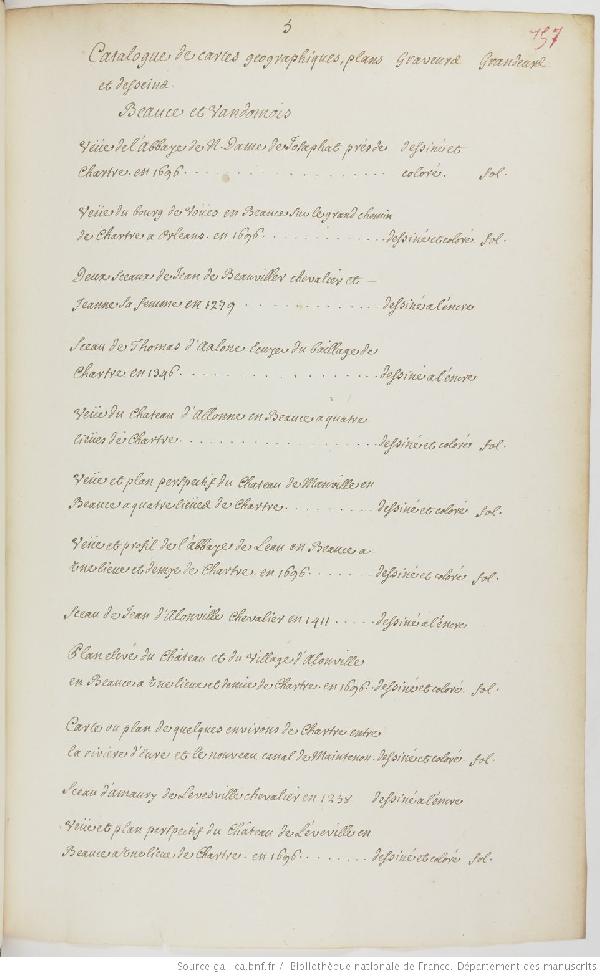 5
757
Catalogue de cartes geographiques, plans Graveure Grandeure
et desseins.
Beauce et Vandomois
Veüe de l'Abbaye de N. Dame de Josaphat près de dessiné et
Chartre. en 1696 . . . . . . . . . . coloré. fol.
Veüe du bourg de Voües en Beauce sur le grand chemin
de Chartre a Orleans. en 1696 . . . . . . . . . . dessiné et coloré fol.
Deux sceaux de Jean de Beauviller chevalier et
Jeanne sa femme en 1279 . . . . . . . . . . dessiné a l'encre
Sceau de Thomas d' du baillage de
Chartre en 1346 . . . . . . . . . . dessiné a l'encre
Veüe du Chateau d'Allonne en Beauce a quatre
lieües de Chartre . . . . . . . . . . dessiné et coloré fol.
Veüe et plan perspectif du Chateau de en
Beauce a quatre lieües de Chartre . . . . . . . dessiné et coloré fol.
Veüe et profil de l'abbaye de Leau en Beauce a
une lieue et demye de Chartre. en 1696 . . . . . . dessiné et coloré fol.
Sceau de Jean d'Alonville Chevalier en 1411 . . . . . dessiné a l'encre
Plan elevé du Château et du Village d'Alonville
en Beauce a une lieue et demie de Chartre. en 1696. dessiné et coloré fol.
Carte ou plan de quelques environs de Chartre entre
la riviere d'eure et le nouveau canal de Maintenon. dessiné et coloré fol.
Sceau d'amaury de Levesville chevalier en 1238 dessiné a l'encre
Veüe et plan perspectif du Château de Léveville en
Beauce a une lieue de Chartre. en 1696 . . . . . . . dessiné et coloré fol.
Source gallica.bnf.fr / Bibliothèque nationale de France. Département des manuscrits